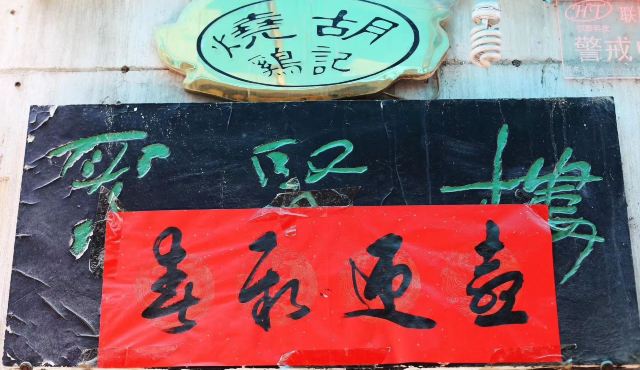 胡記
燒鷄
聖賢樓
喜迎新春
HT 联
警戒